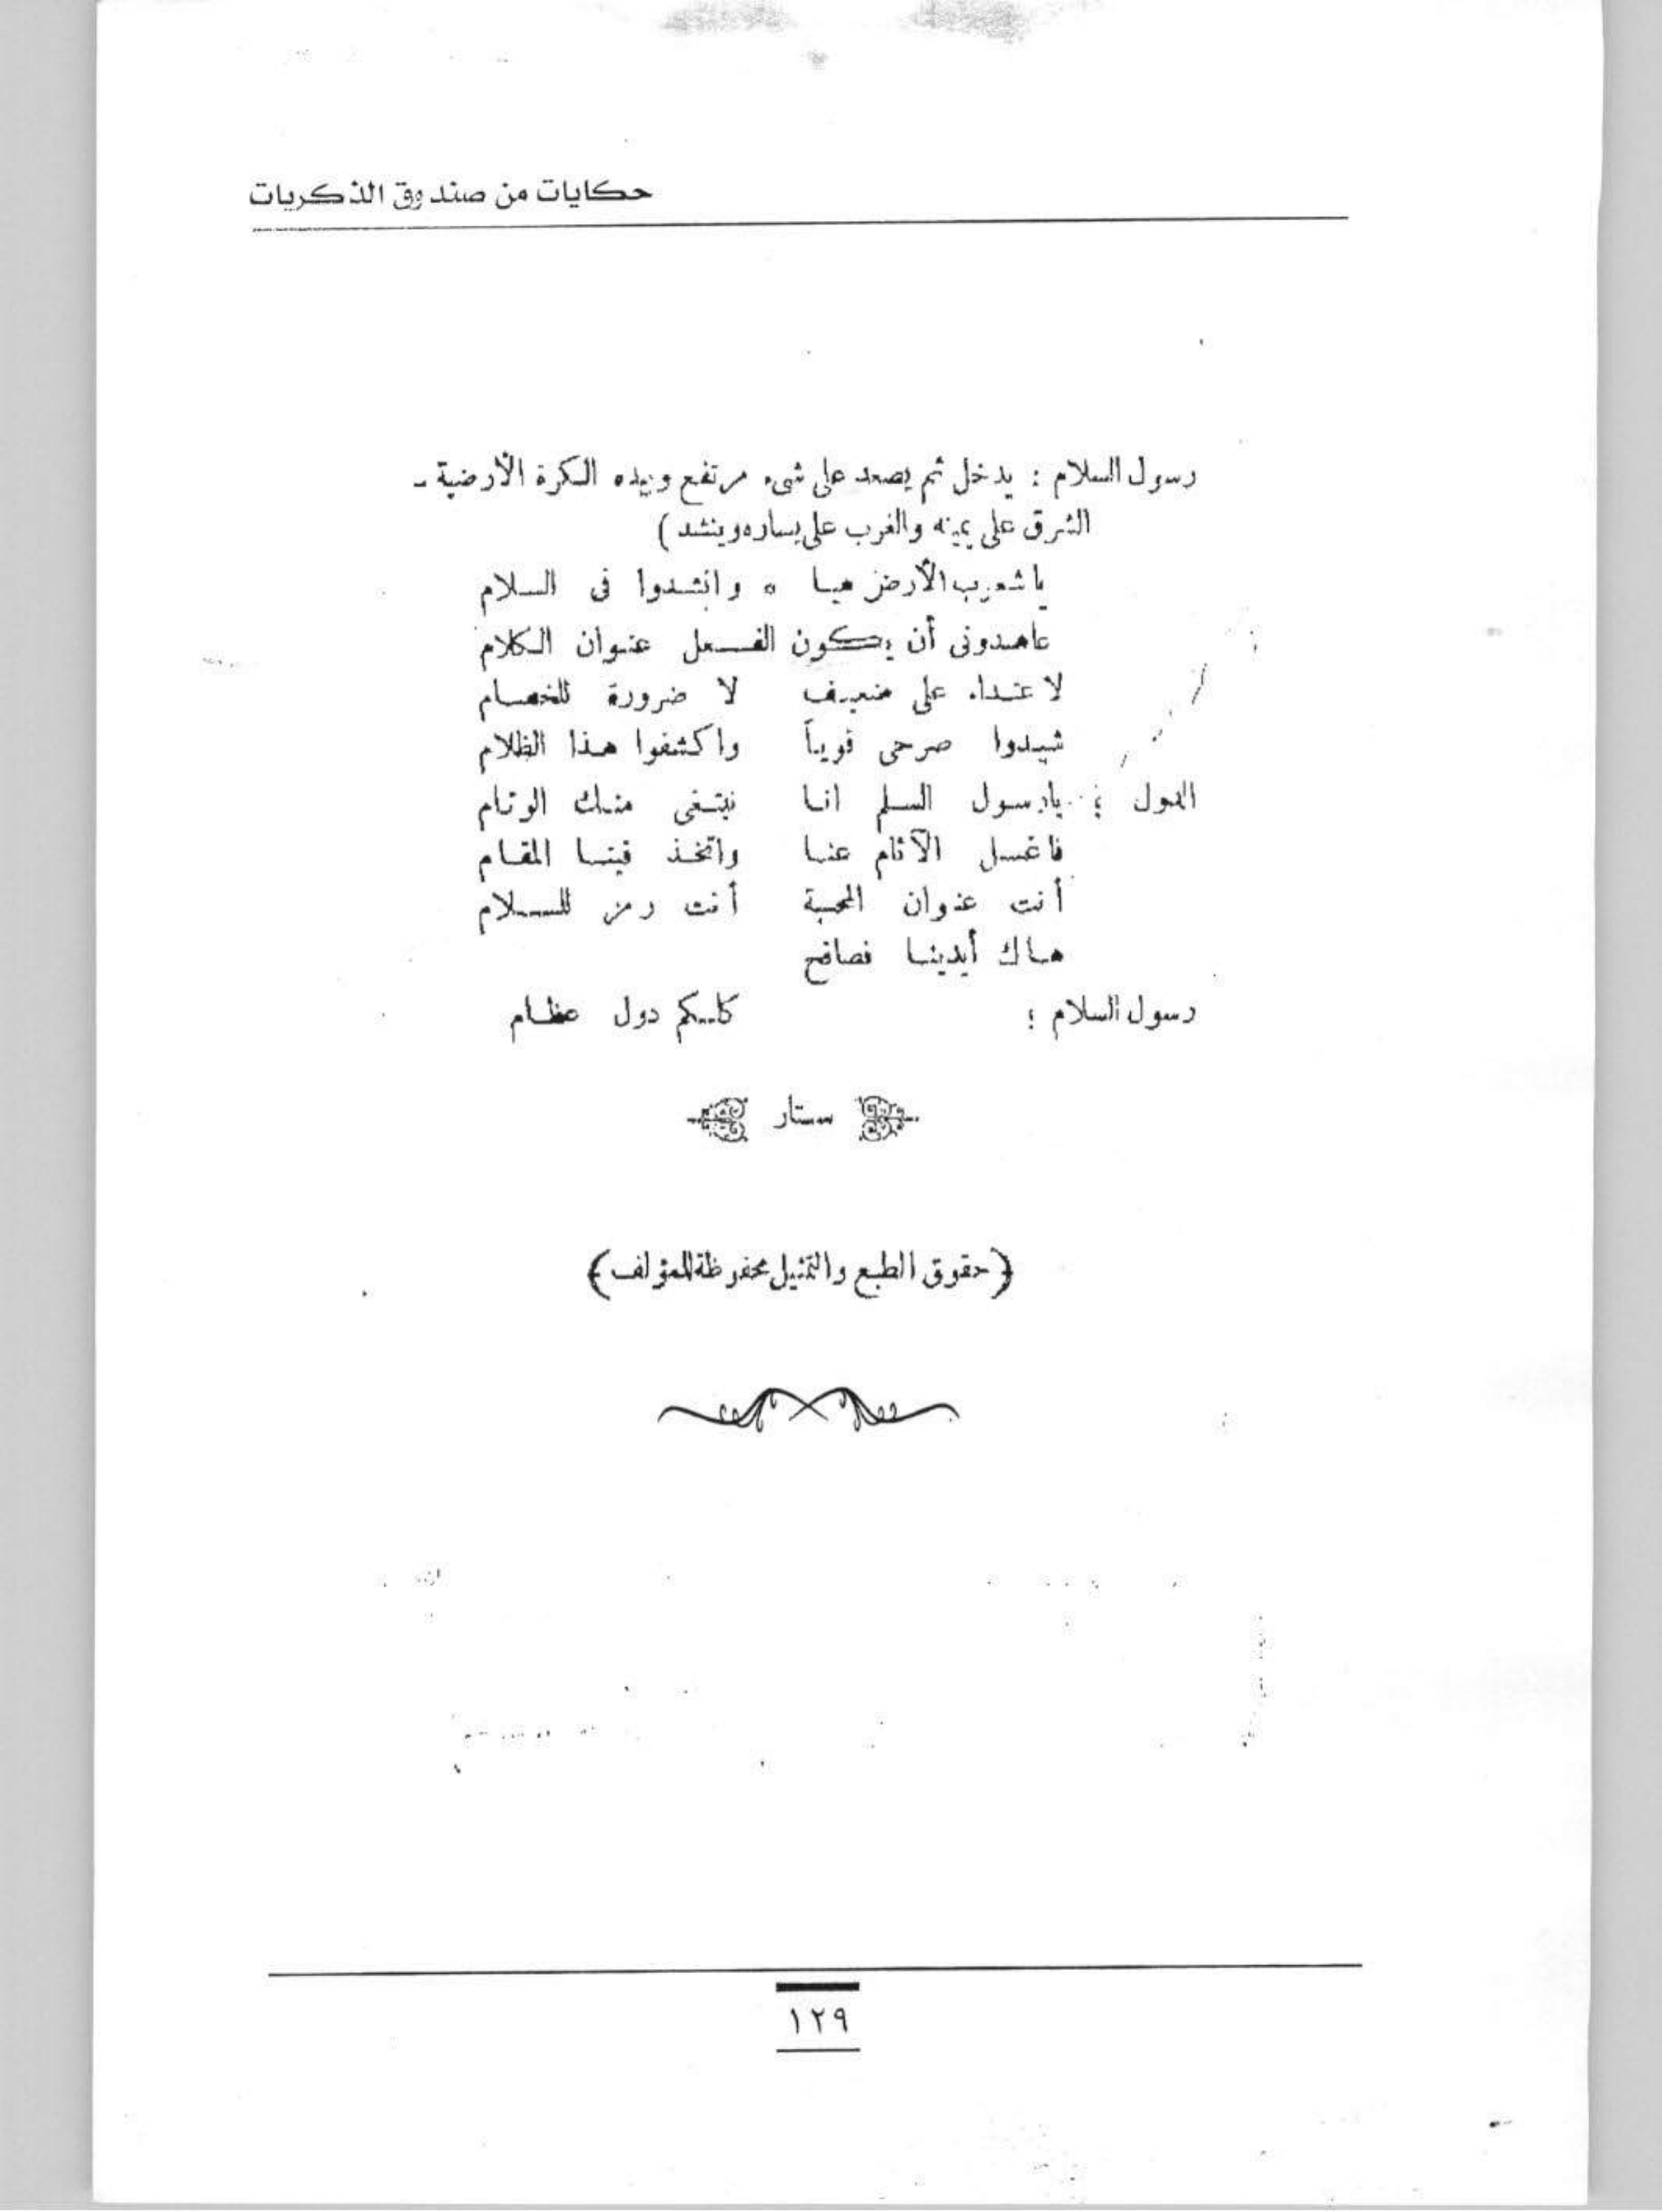 حكايات من صندوق الذكريات
رسول السلام : يدخل ثم يصعد على شىء مرتفع وبيده الكرة الأرضية -
الشرق على يمينه والغرب على يساره وينشد )
يا شعوب الأرض هيا ٥ وانشدوا فى السلام
عاهدونى أن يكون الفعل عنوان الكلام
لا عتداء على ضعيف لا ضرورة للخصام
شيدوا صرحى قوياً واكشفوا هذا الظلام
الدول : يارسول السلم انا نبتغى منك الوئام
فاغسل الآثام عنا واتخذ فينا المقام
أنت عنوان المحبة أنت رمز للسلام
هاك أيدينا فصافح
رسول السلام : كلكم دول عظام
ستار
( حقوق الطبع والتمثيل محفوظة للمؤلف )
١٢٩